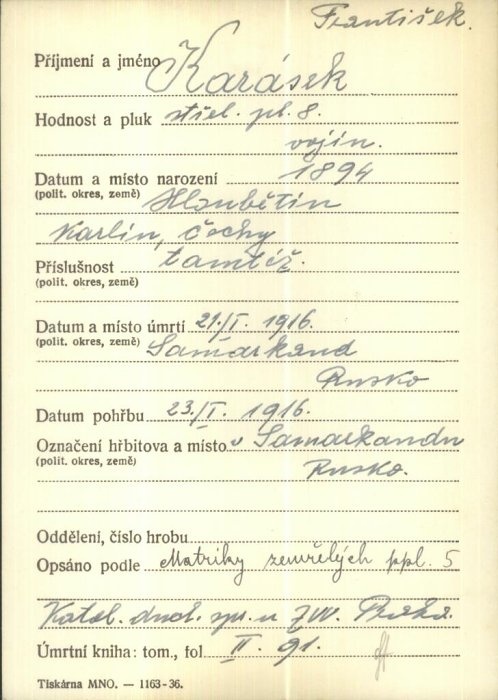 František.
Příjmení a jméno Karásek
Hodnost a pluk střel. pl. 8.
vojín.
Datum a místo narození 1894
(polit. okres, země) Hloubětín
Karlín, Čechy
Příslušnost tamtéž.
(polit. okres, země)
Datum a místo úmrtí 21./I. 1916.
(polit. okres, země) Samarkand
Rusko
Datum pohřbu 23./I. 1916.
Označení hřbitova a místo v Samarkandu
(polit. okres, země) Rusko.
Oddělení, číslo hrobu
Opsáno podle Matriky zemřelých ppl. 5
Katol. duch. spr. u ZVV. Praha.
Úmrtní kniha: tom., fol II. 91.
Tiskárna MNO. — 1163-36.